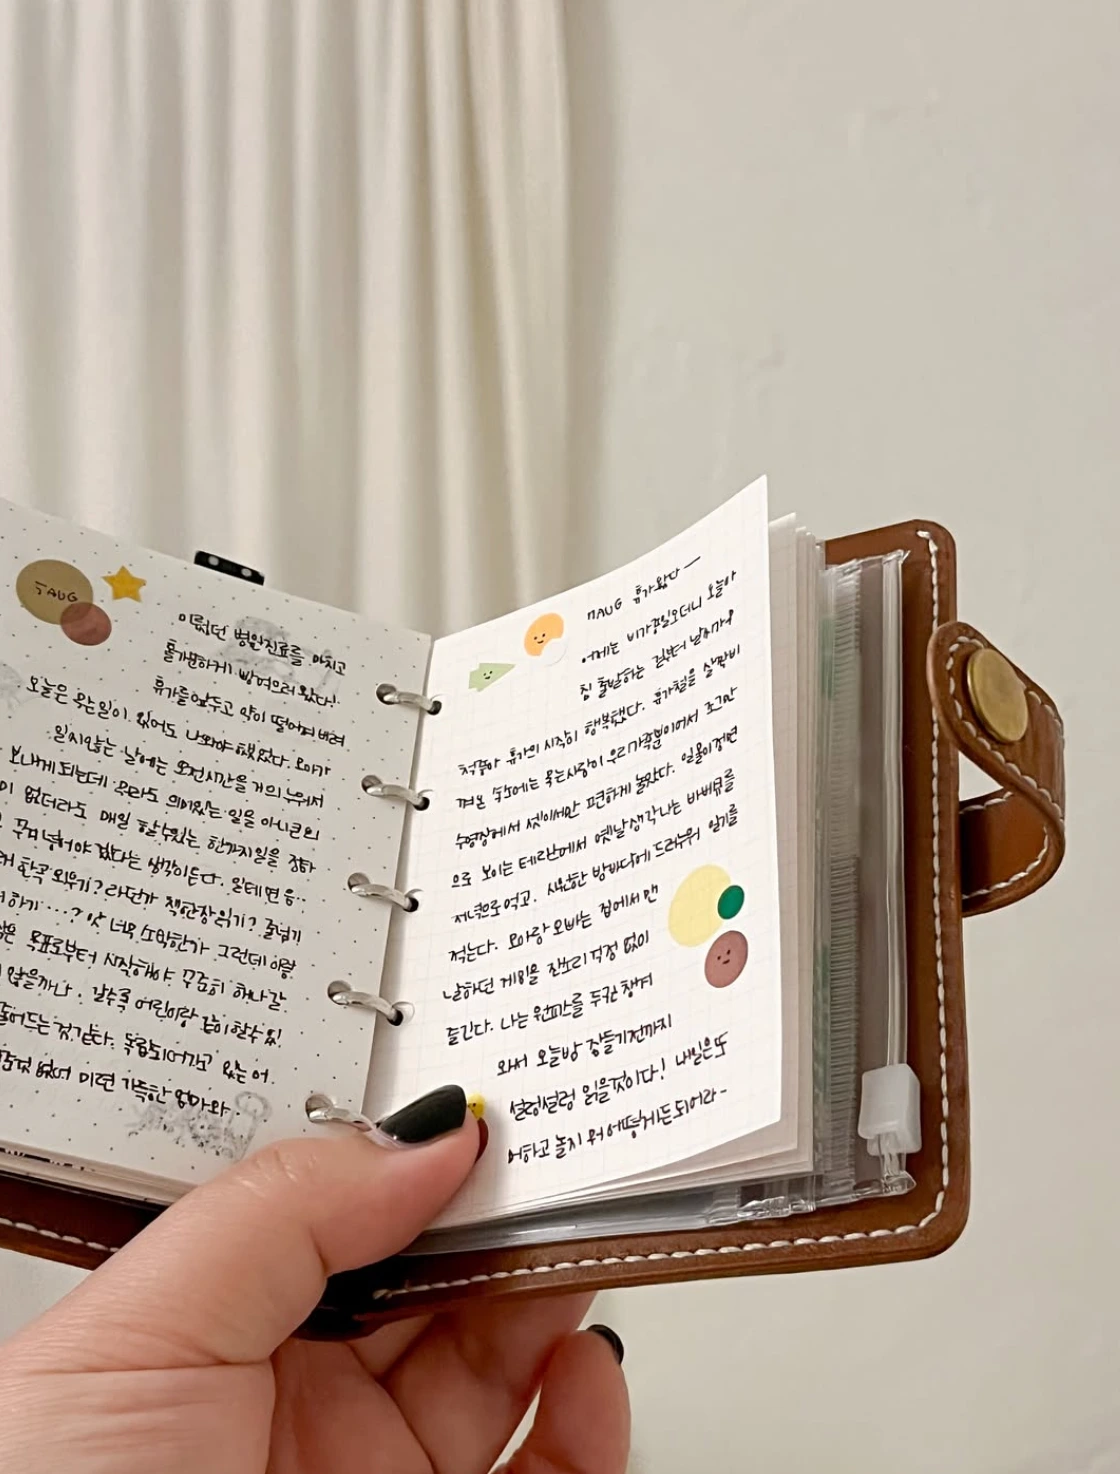 5AUG
미뤘던 병원진료를 마치고
휴가를 앞두고 약이 떨어져 버려
오늘은 우는일이 있어도 나와야 했었다. 요아가
일지않는 날에는 오전시간을 거의 누워서
보내게되는데 우라도 의미있는 일을 아니큰의
이 없더라도 매일 할수있는 한가지일을 정하
꾸겨넣어야겠다는 생각이든다. 일테면 음..
한곡 외우기? 라던가 책한장읽기? 줄넘기
하기 …? 앗 너무 소박한가 그런데 이랗
목표로부터 시작해야 꾸준히 하나갈
않을까나. 갈수록 어린이랑 같이할수있
줄어드는것같다. 독립되어가고 있는 어.
없어 미련 가득한 엄마와.
11AUG 휴가왔다 —
어제는 비가종일오더니 오늘아
침 출발하는 길부터 날씨가
척좋아 휴가의 시작이 행복했다. 휴가철을 살짝비
껴온 숙소에는 묵는사람이 우리가족뿐이어서 조그만
수영장에서 셋이서만 편하게 놀았다. 일몰이정면
으로 보이는 테라스에서 옛날생각나는 바베큐를
저녁으로먹고. 시원한 방바닥에 드러누워 일기를
적는다. 요아랑 오빠는 집에서 맨
날하던 게임을 잔소리걱정 없이
즐긴다. 나는 원피스를 두권 챙겨
와서 오늘밤 잠들기전까지
설렁설렁 읽을것이다! 내일은또
하고 놀지 뭐 어떻게든되어라-